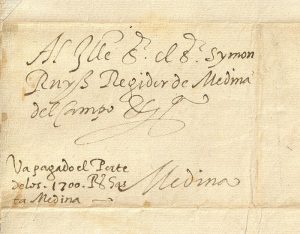 Al Ille Sr. el Sr. Symon
Ruyß Regidor de Medina
del Campo &
Va pagado el Porte
de los 1700 Rs has
ta Medina
Medina